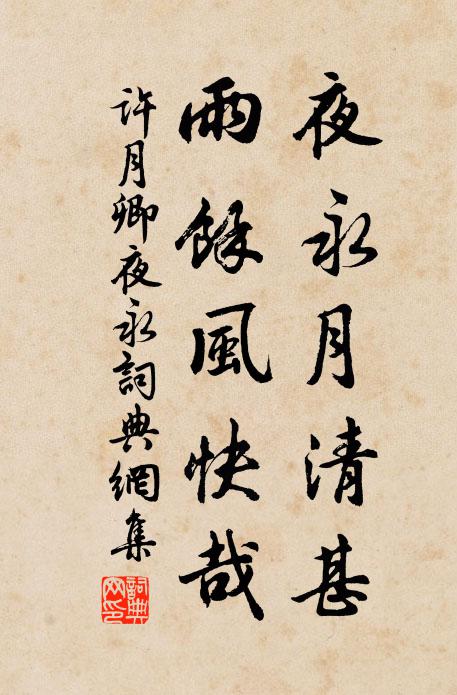 夜永月清甚
雨餘風快哉
許月卿夜永詞典網集
詞典網印